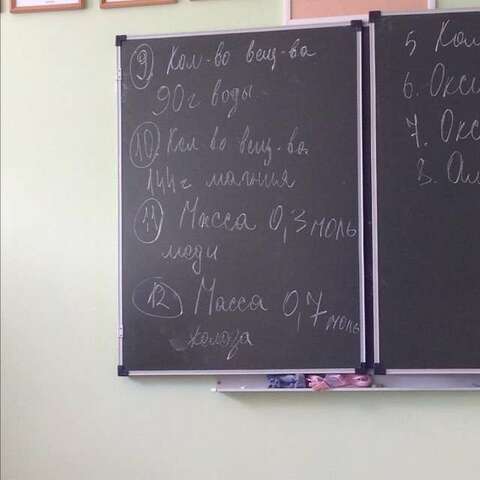 9. Кол-во вещ-ва
90г воды
10. Кол-во вещ-ва
144г магния
11 Масса 0,3 моль
меди
12 Масса 0,7 моль
5 Кол
6. Окси
7. Окс
8. Ол